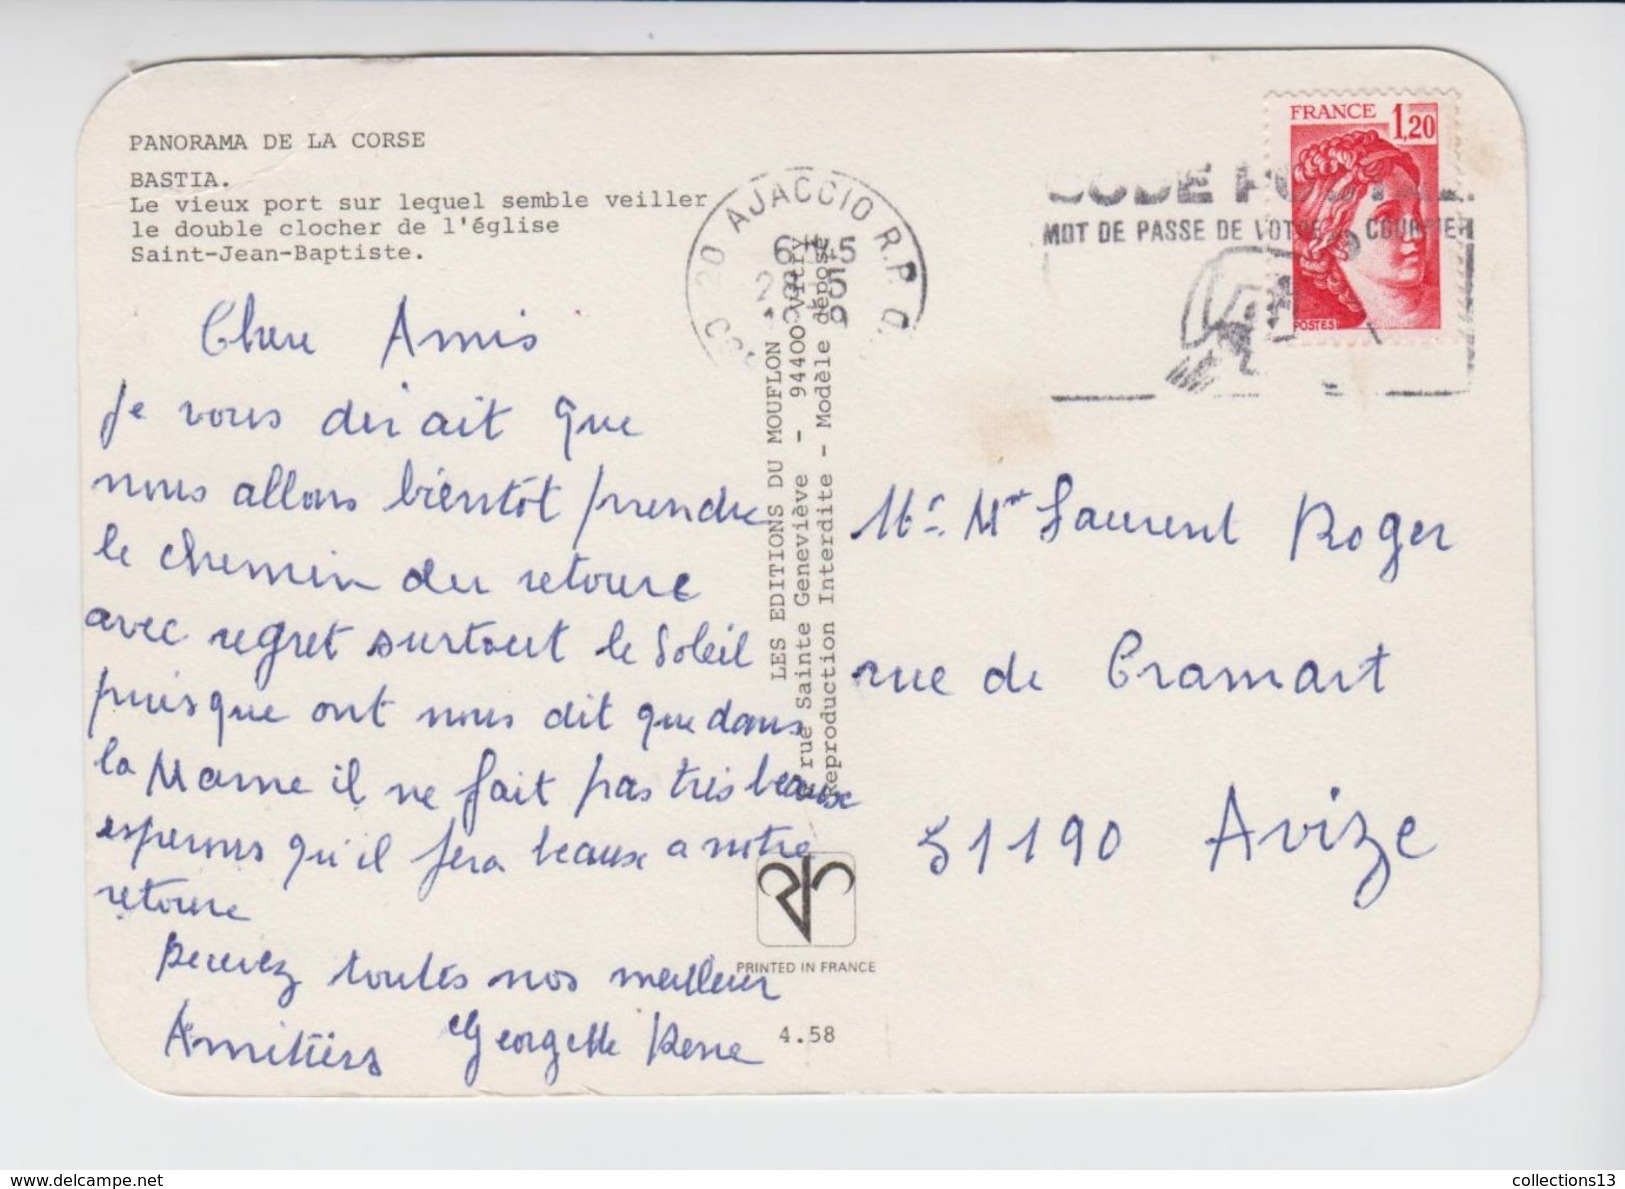 PANORAMA DE LA CORSE
BASTIA.
Le vieux port sur lequel semble veiller
le double clocher de l'église
Saint-Jean-Baptiste.
Chere Amis
je vous dirait que
nous allons bientôt prendre
le chemin du retoure
avec regret surtout le soleil
puisque ont nous dit que dans
la Marne il ne fait pas très beaux
esperons qu'il fera beaux a notre
retoure
Recevez toutes nos meilleur
Amitiers Georgette Rene
LES EDITIONS DU MOUFLON
rue Sainte Geneviève - 94400 Vitry
Reproduction Interdite - Modèle déposé
PRINTED IN FRANCE
4.58
20 AJACCIO R.P.
CODE POSTAL
MOT DE PASSE DE VOTRE COURRIER
FRANCE 1,20
POSTES
Mr Mme Laurent Roger
rue de Cramart
51190 Avize
www.delcampe.net
collections13